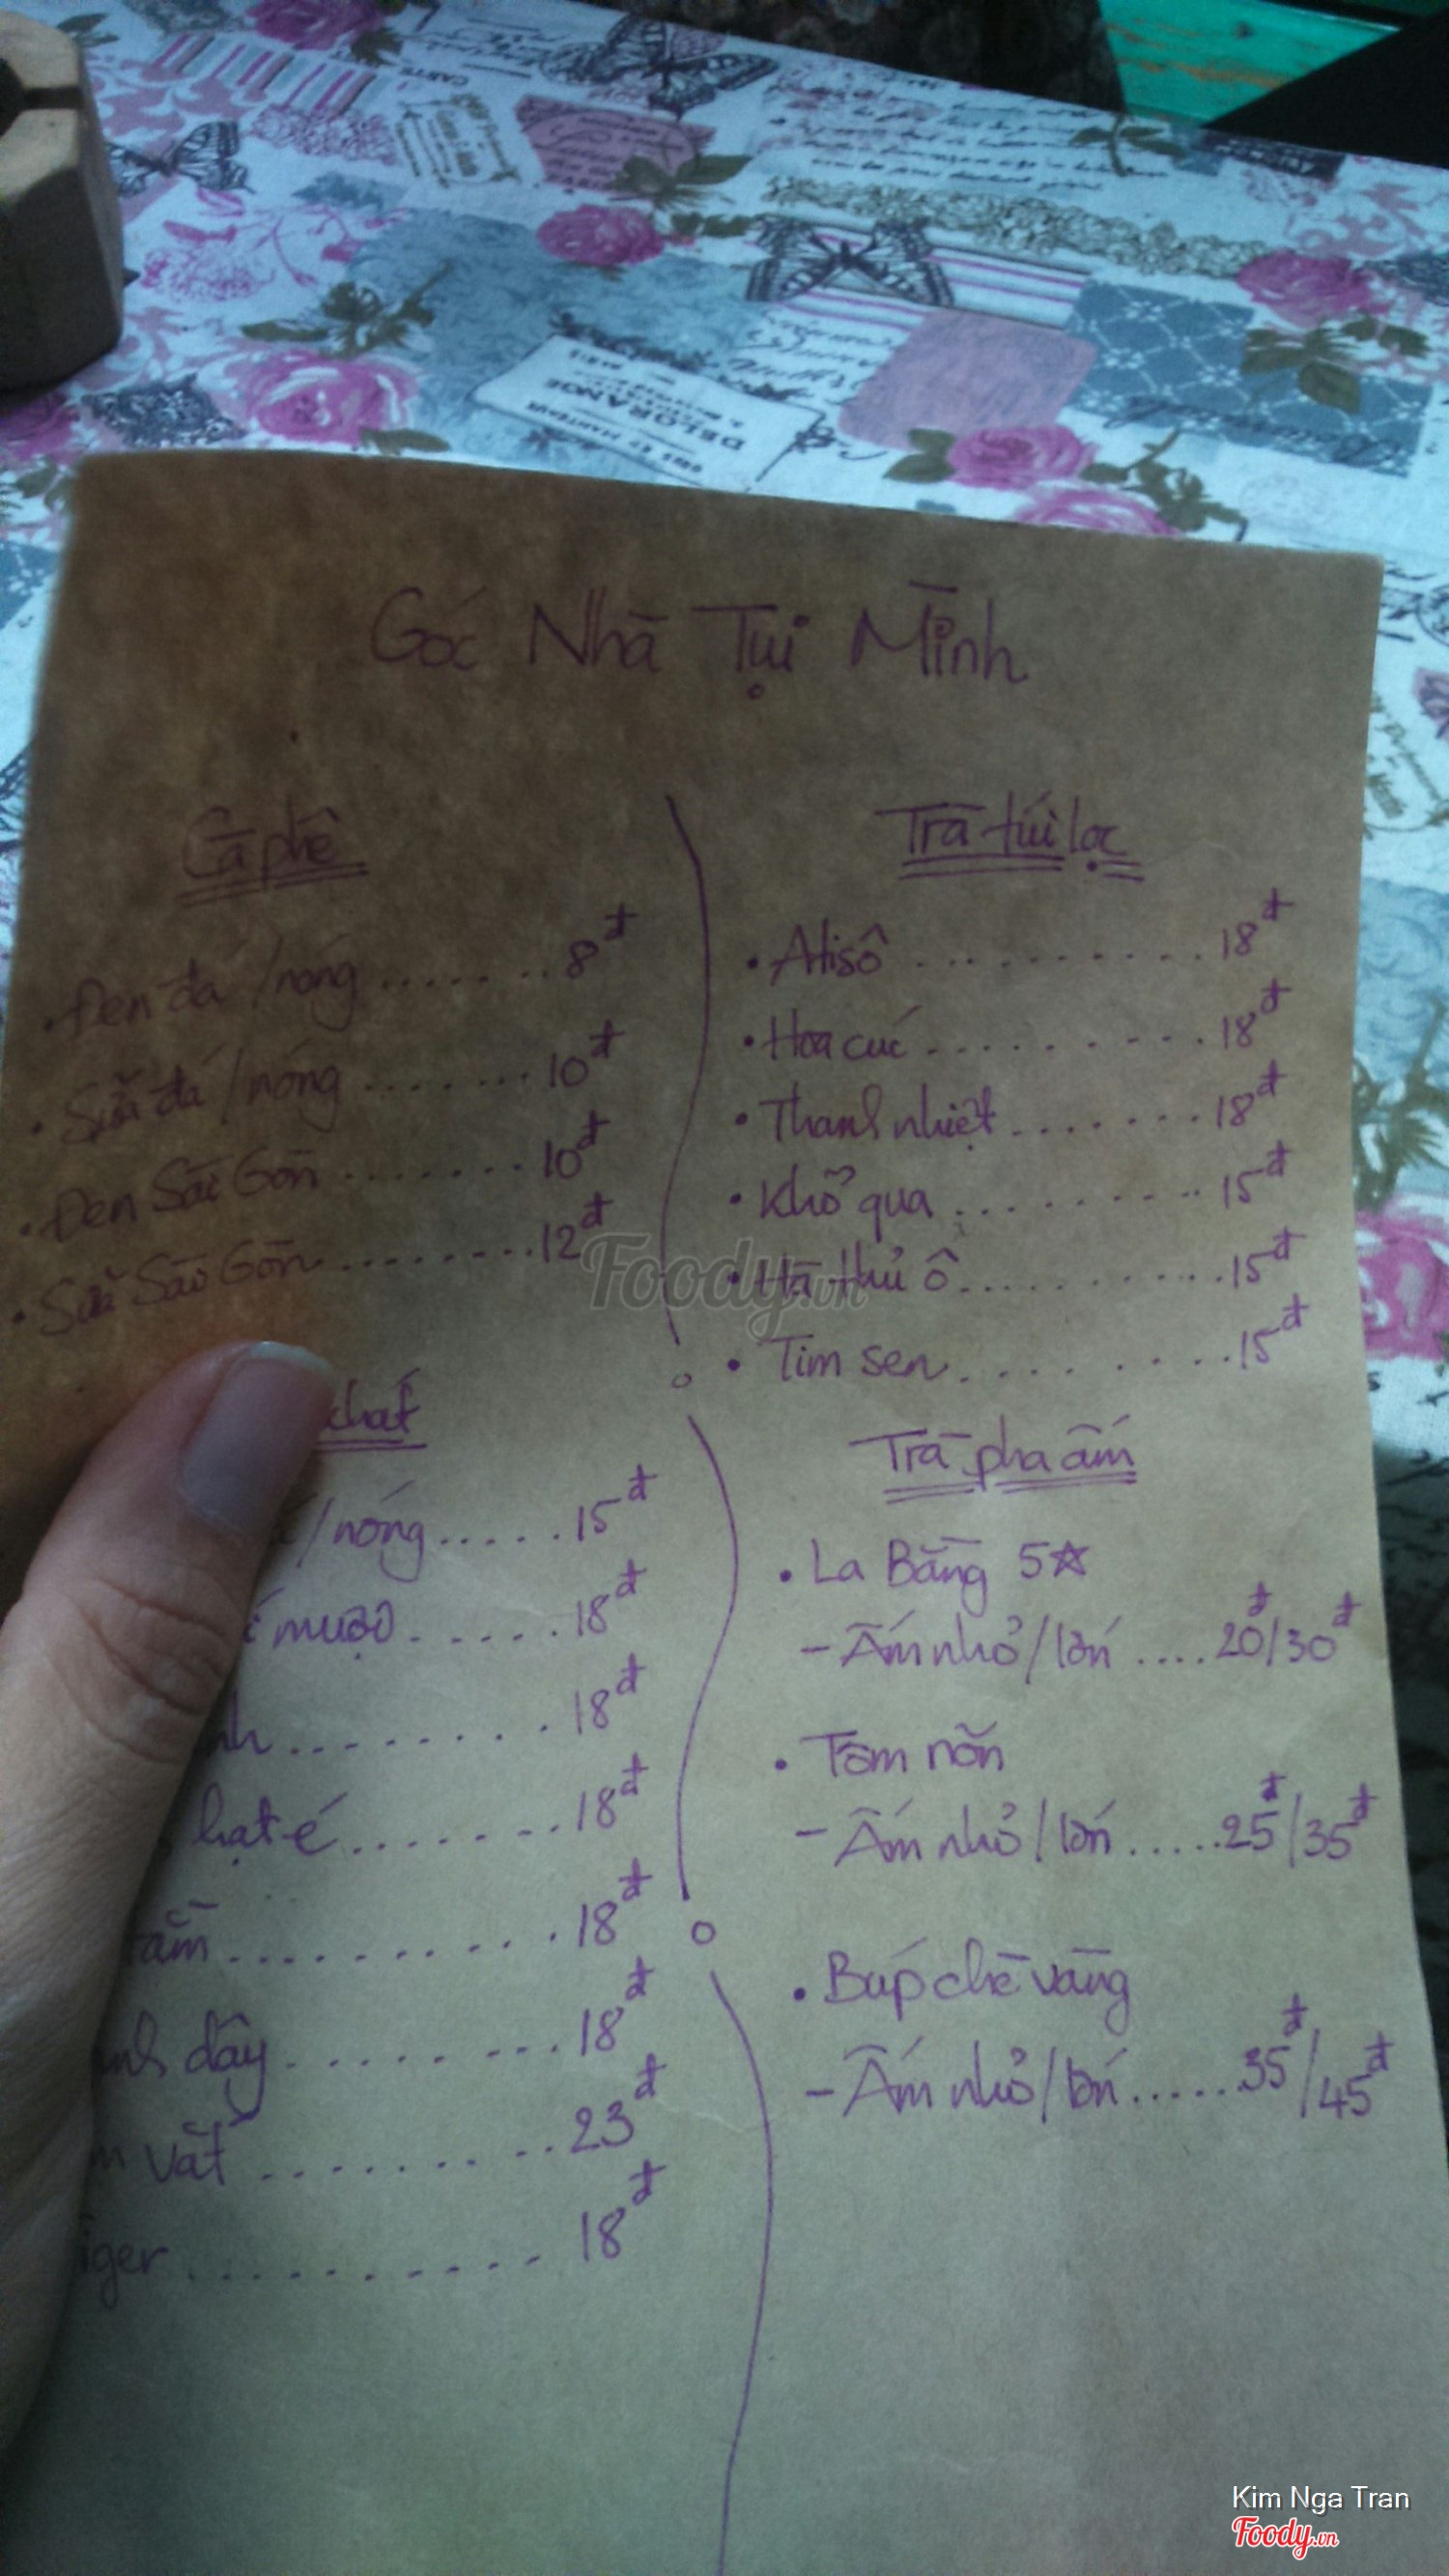 Góc Nhà Tụi Mình
Cà phê
• Đen đá / nóng ....... 8đ
• Sữa đá / nóng ....... 10đ
• Đen Sài Gòn ....... 10đ
• Sữa Sài Gòn ........ 12đ
chat
/ nóng ..... 15đ
muối ..... 18đ
nh ........ 18đ
hạt é ....... 18đ
tằm .......... 18đ
dây ........ 18đ
vặt ........ 23đ
iger .......... 18đ
Trà túi lọc
• Atisô .......... 18đ
• Hoa cúc ......... 18đ
• Thanh nhiệt ....... 18đ
• Khổ qua ......... 15đ
• Hà thủ ô .......... 15đ
• Tim sen ......... 15đ
Trà pha ấm
• La Bằng 5☆
- Ấm nhỏ / lớn .... 20đ/30đ
• Tôm nõn
- Ấm nhỏ / lớn ..... 25đ/35đ
• Búp chè vàng
- Ấm nhỏ / lớn ...... 35đ/45đ
DELORANGE
CARTE
Foody.vn
Kim Nga Tran
Foody.vn